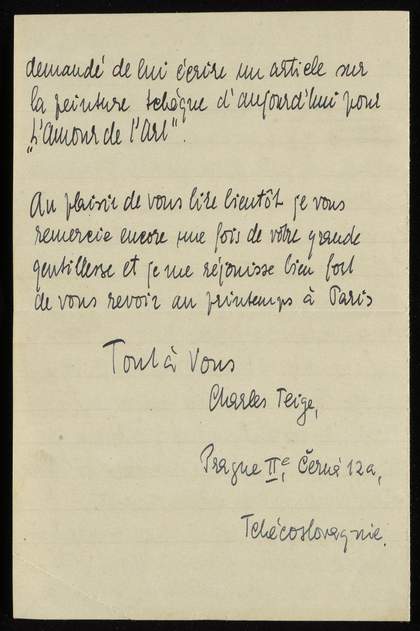 demandé de lui écrire un article sur
la peinture tchèque d'aujourd'hui pour
„L'Amour de l'Art".
Au plaisir de vous lire bientôt je vous
remercie encore une fois de vôtre grande
gentillesse et je me réjouisse bien fort
de vous revoir au printemps à Paris
Tout à Vous
Charles Teige,
Prague II^e, Černá 12a,
Tchécoslovaquie.